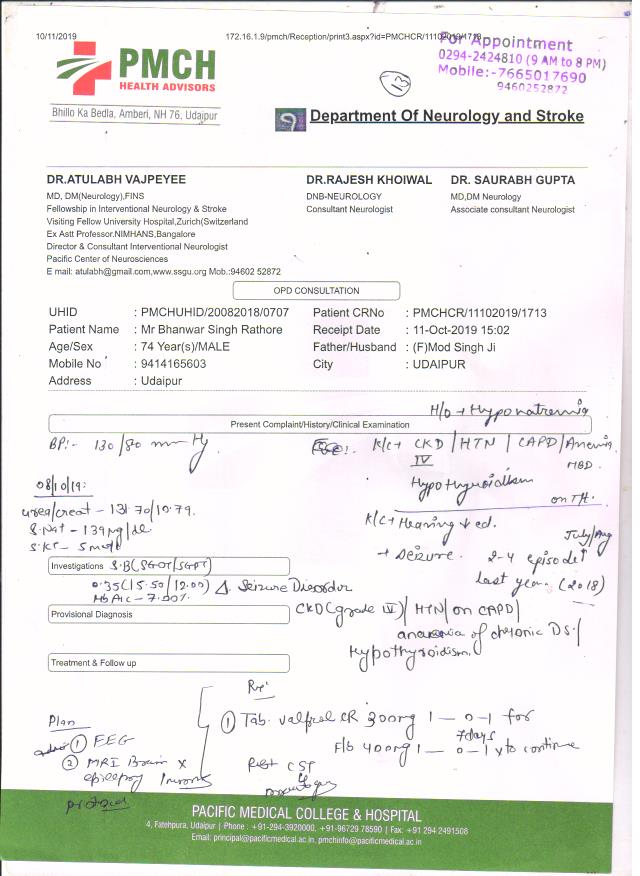 10/11/2019 172.16.1.9/pmch/Reception/print3.aspx?id=PMCHCR/11102019/1713
For Appointment
0294-2424810 (9 AM to 8 PM)
Mobile:-7665017690
9460252872
13
PMCH
HEALTH ADVISORS
Bhillo Ka Bedla, Amberi, NH 76, Udaipur
Department Of Neurology and Stroke
DR.ATULABH VAJPEYEE
MD, DM(Neurology),FINS
Fellowship in Interventional Neurology & Stroke
Visiting Fellow University Hospital,Zurich(Switzerland
Ex Astt Professor.NIMHANS,Bangalore
Director & Consultant Interventional Neurologist
Pacific Center of Neurosciences
E mail: atulabh@gmail.com,www.ssgu.org Mob.:94602 52872
DR.RAJESH KHOIWAL
DNB-NEUROLOGY
Consultant Neurologist
DR. SAURABH GUPTA
MD,DM Neurology
Associate consultant Neurologist
OPD CONSULTATION
UHID : PMCHUHID/20082018/0707 Patient CRNo : PMCHCR/11102019/1713
Patient Name : Mr Bhanwar Singh Rathore Receipt Date : 11-Oct-2019 15:02
Age/Sex : 74 Year(s)/MALE Father/Husband : (F)Mod Singh Ji
Mobile No : 9414165603 City : UDAIPUR
Address : Udaipur
H/o → Hyponatremia
Present Complaint/History/Clinical Examination
BP:- 130/80 mm Hg
K/C+ CKD / HTN / CAPD / Anemia
IV MBD
Hypothyroidism
on T/t.
08/10/19:
urea/creat - 131.70/10.79.
S.Na+ - 139 mg/dl
S.K+ - 5
K/C+ Hearing ↓ed.
→ Seizure. 2-4 episode
July/Aug
last year (2018)
Investigations S.B(SGOT/SGPT)
0.35(15.50/12.00)
HbA1c - 7.00%
Δ. Seizure Disorder
Provisional Diagnosis
CKD(grade IV)/HTN/on CAPD/
anaemia of chronic DS/
Hypothyroidism.
Treatment & Follow up
Rx
Plan
① EEG
② MRI Brain
epilepsy
protocol
① Tab. valprol CR 300mg 1 — 0 — 1 for
7days
F/b 400mg 1 — 0 — 1 x to continue
Rest CST
PACIFIC MEDICAL COLLEGE & HOSPITAL
4, Fatehpura, Udaipur | Phone : +91-294-3920000, +91-96729 78590 | Fax: +91 294 2491508
Email: principal@pacificmedical.ac.in, pmchinfo@pacificmedical.ac.in